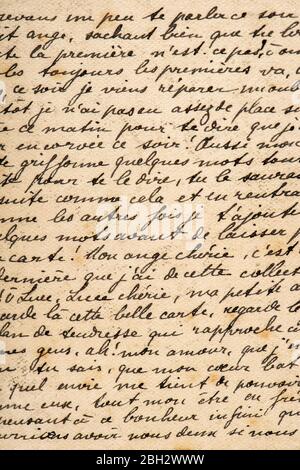 devais un peu te parler ce soir
et ange, sachant bien que tu
la première n'est-ce pas, o
les toujours les premières va,
ce soir je viens réparer
tôt je n'ai pas eu assez de place
ce matin pour te dire que je
en corvée ce soir! Aussi mon
griffonne quelques mots tou
pour te le dire, tu le sauras
suite comme cela et en rentra
me les autres fois je t'ajoute
elques mots avant de laisser
carte. Mon ange chérie, c'est
dernière que j'ai de cette collect
Luce, Luce chérie, ma petite a
arde là cette belle carte, regarde l
lan de tendresse qui rapproche c
es gus, ah! mon amour, que j'
tu sais, que mon cœur bat
quel envie me tient de pouvoir
me eux, tout mon être en fré
pensant à ce bonheur infini qu
ourrions avoir nous deux si nous
alamy
Image ID: 2H2WWWW
www.alamy.com